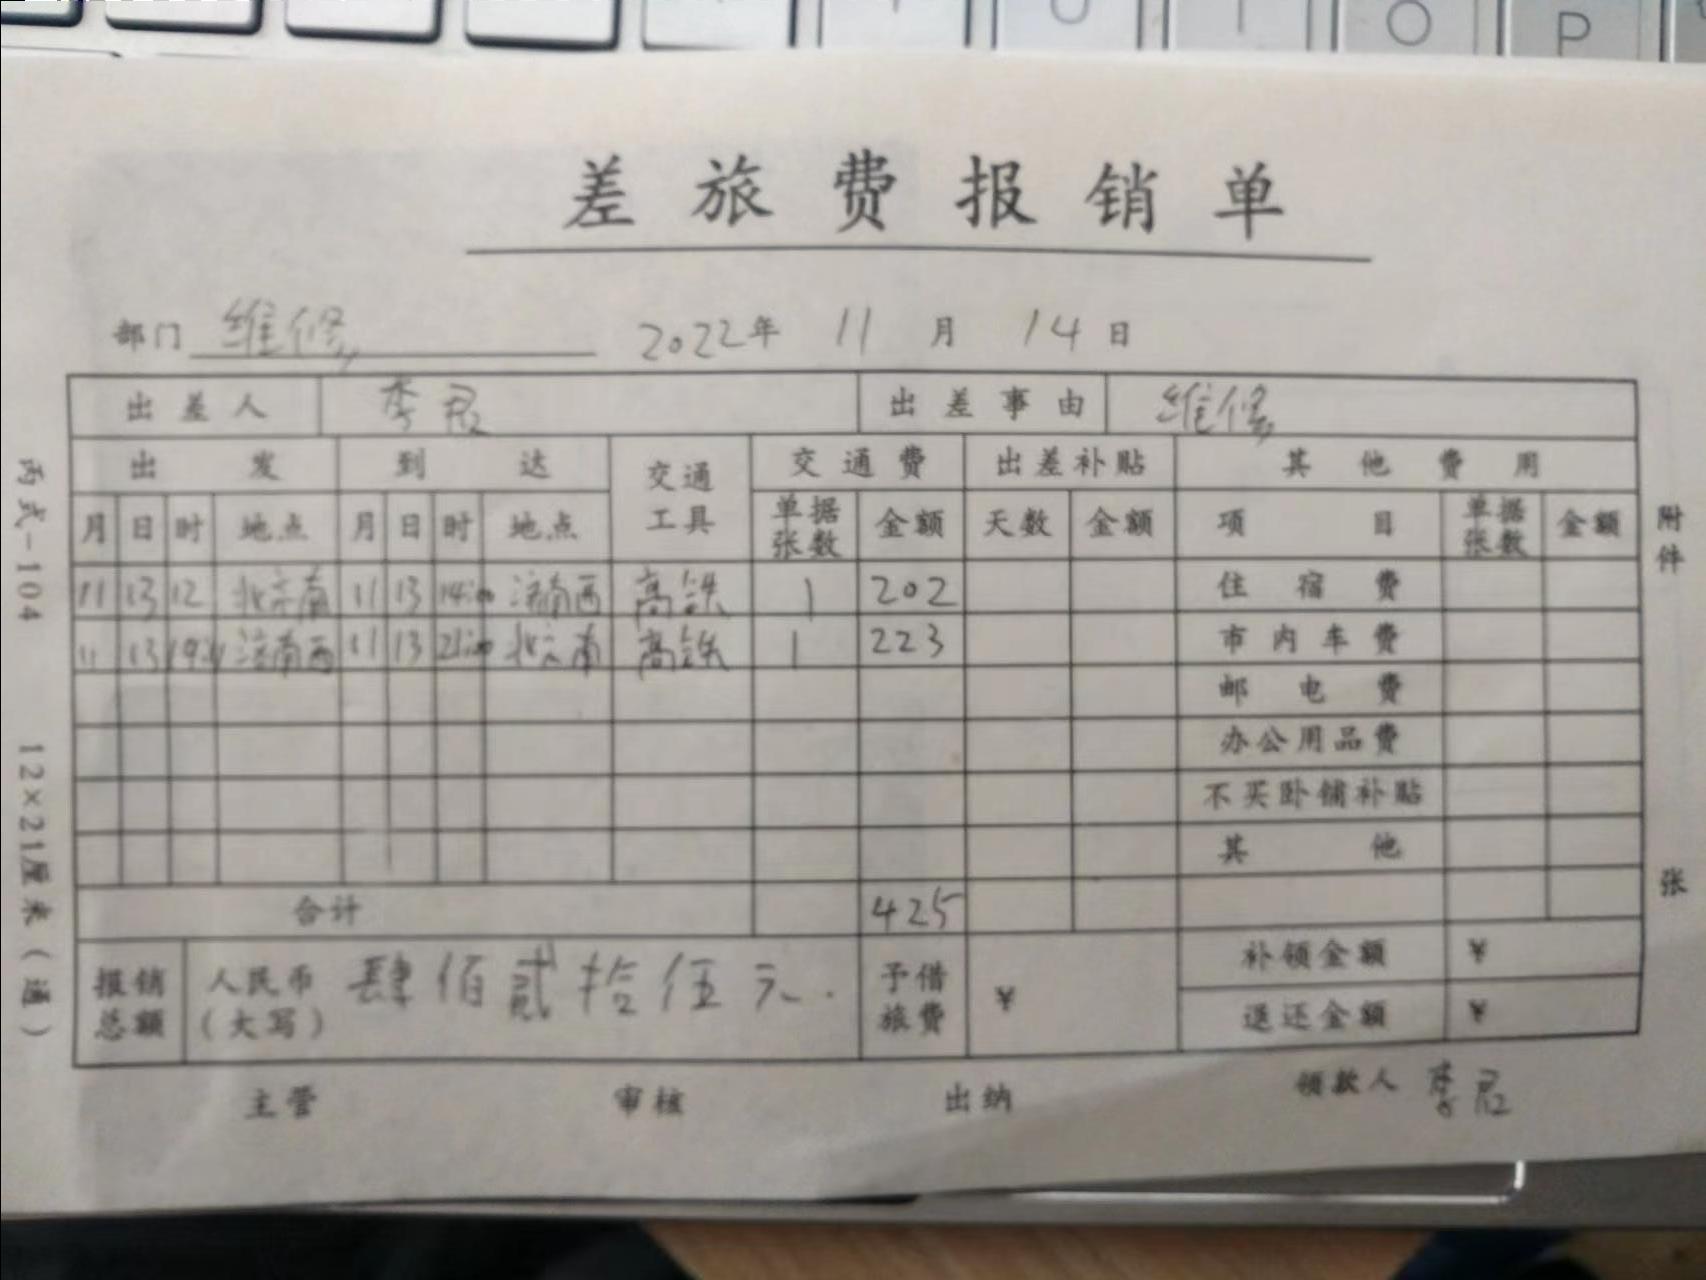 O P
差旅费报销单
部门 维修 2022年 11 月 14 日
出差人 李君 出差事由 维修
出发 到达 交通工具 交通费 出差补贴 其他费用
月 日 时 地点 月 日 时 地点 单据张数 金额 天数 金额 项目 单据张数 金额
11 13 12 北京南 11 13 济南西 高铁 1 202 住宿费
11 13 济南西 11 13 北京南 高铁 1 223 市内车费
邮电费
办公用品费
不买卧铺补贴
其他
合计 425
报销总额 人民币(大写) 肆佰贰拾伍元. 予借旅费 ¥ 补领金额 ¥
退还金额 ¥
主管 审核 出纳 领款人 李君
丙式-104 12×21厘米(通)
附件 张